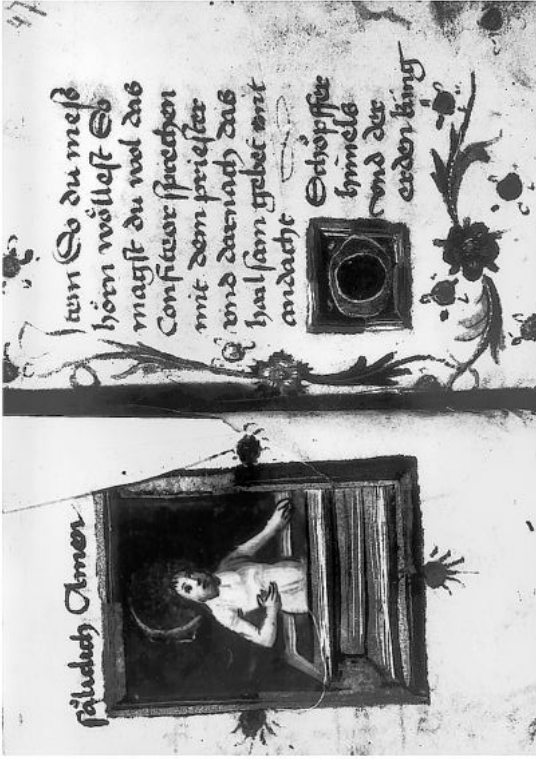 säliclich Amen
47
Item So du meß
hörn wöllest So
magst du wol das
Confiteor sprechen
mit dem priester
vnd darnach das
hailsam gebet mit
andacht
O Schöpffer
himels
vnd der
erden küng